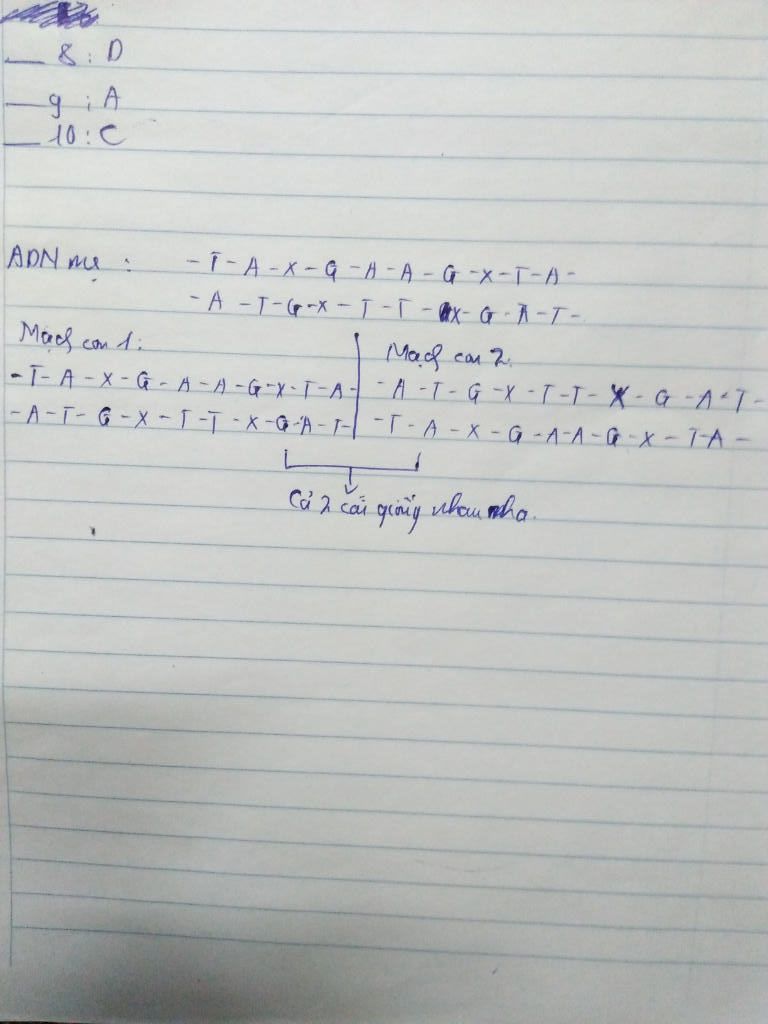 8 : D
9 ; A
10 : C
ADN mẹ : - T - A - X - G - A - A - G - X - T - A -
- A - T - G - X - T - T - X - G - A - T -
Mạch con 1:
- T - A - X - G - A - A - G - X - T - A -
- A - T - G - X - T - T - X - G - A - T -
Mạch con 2.
- A - T - G - X - T - T - X - G - A - T -
- T - A - X - G - A - A - G - X - T A -
Cả 2 cái giống nhau nha.